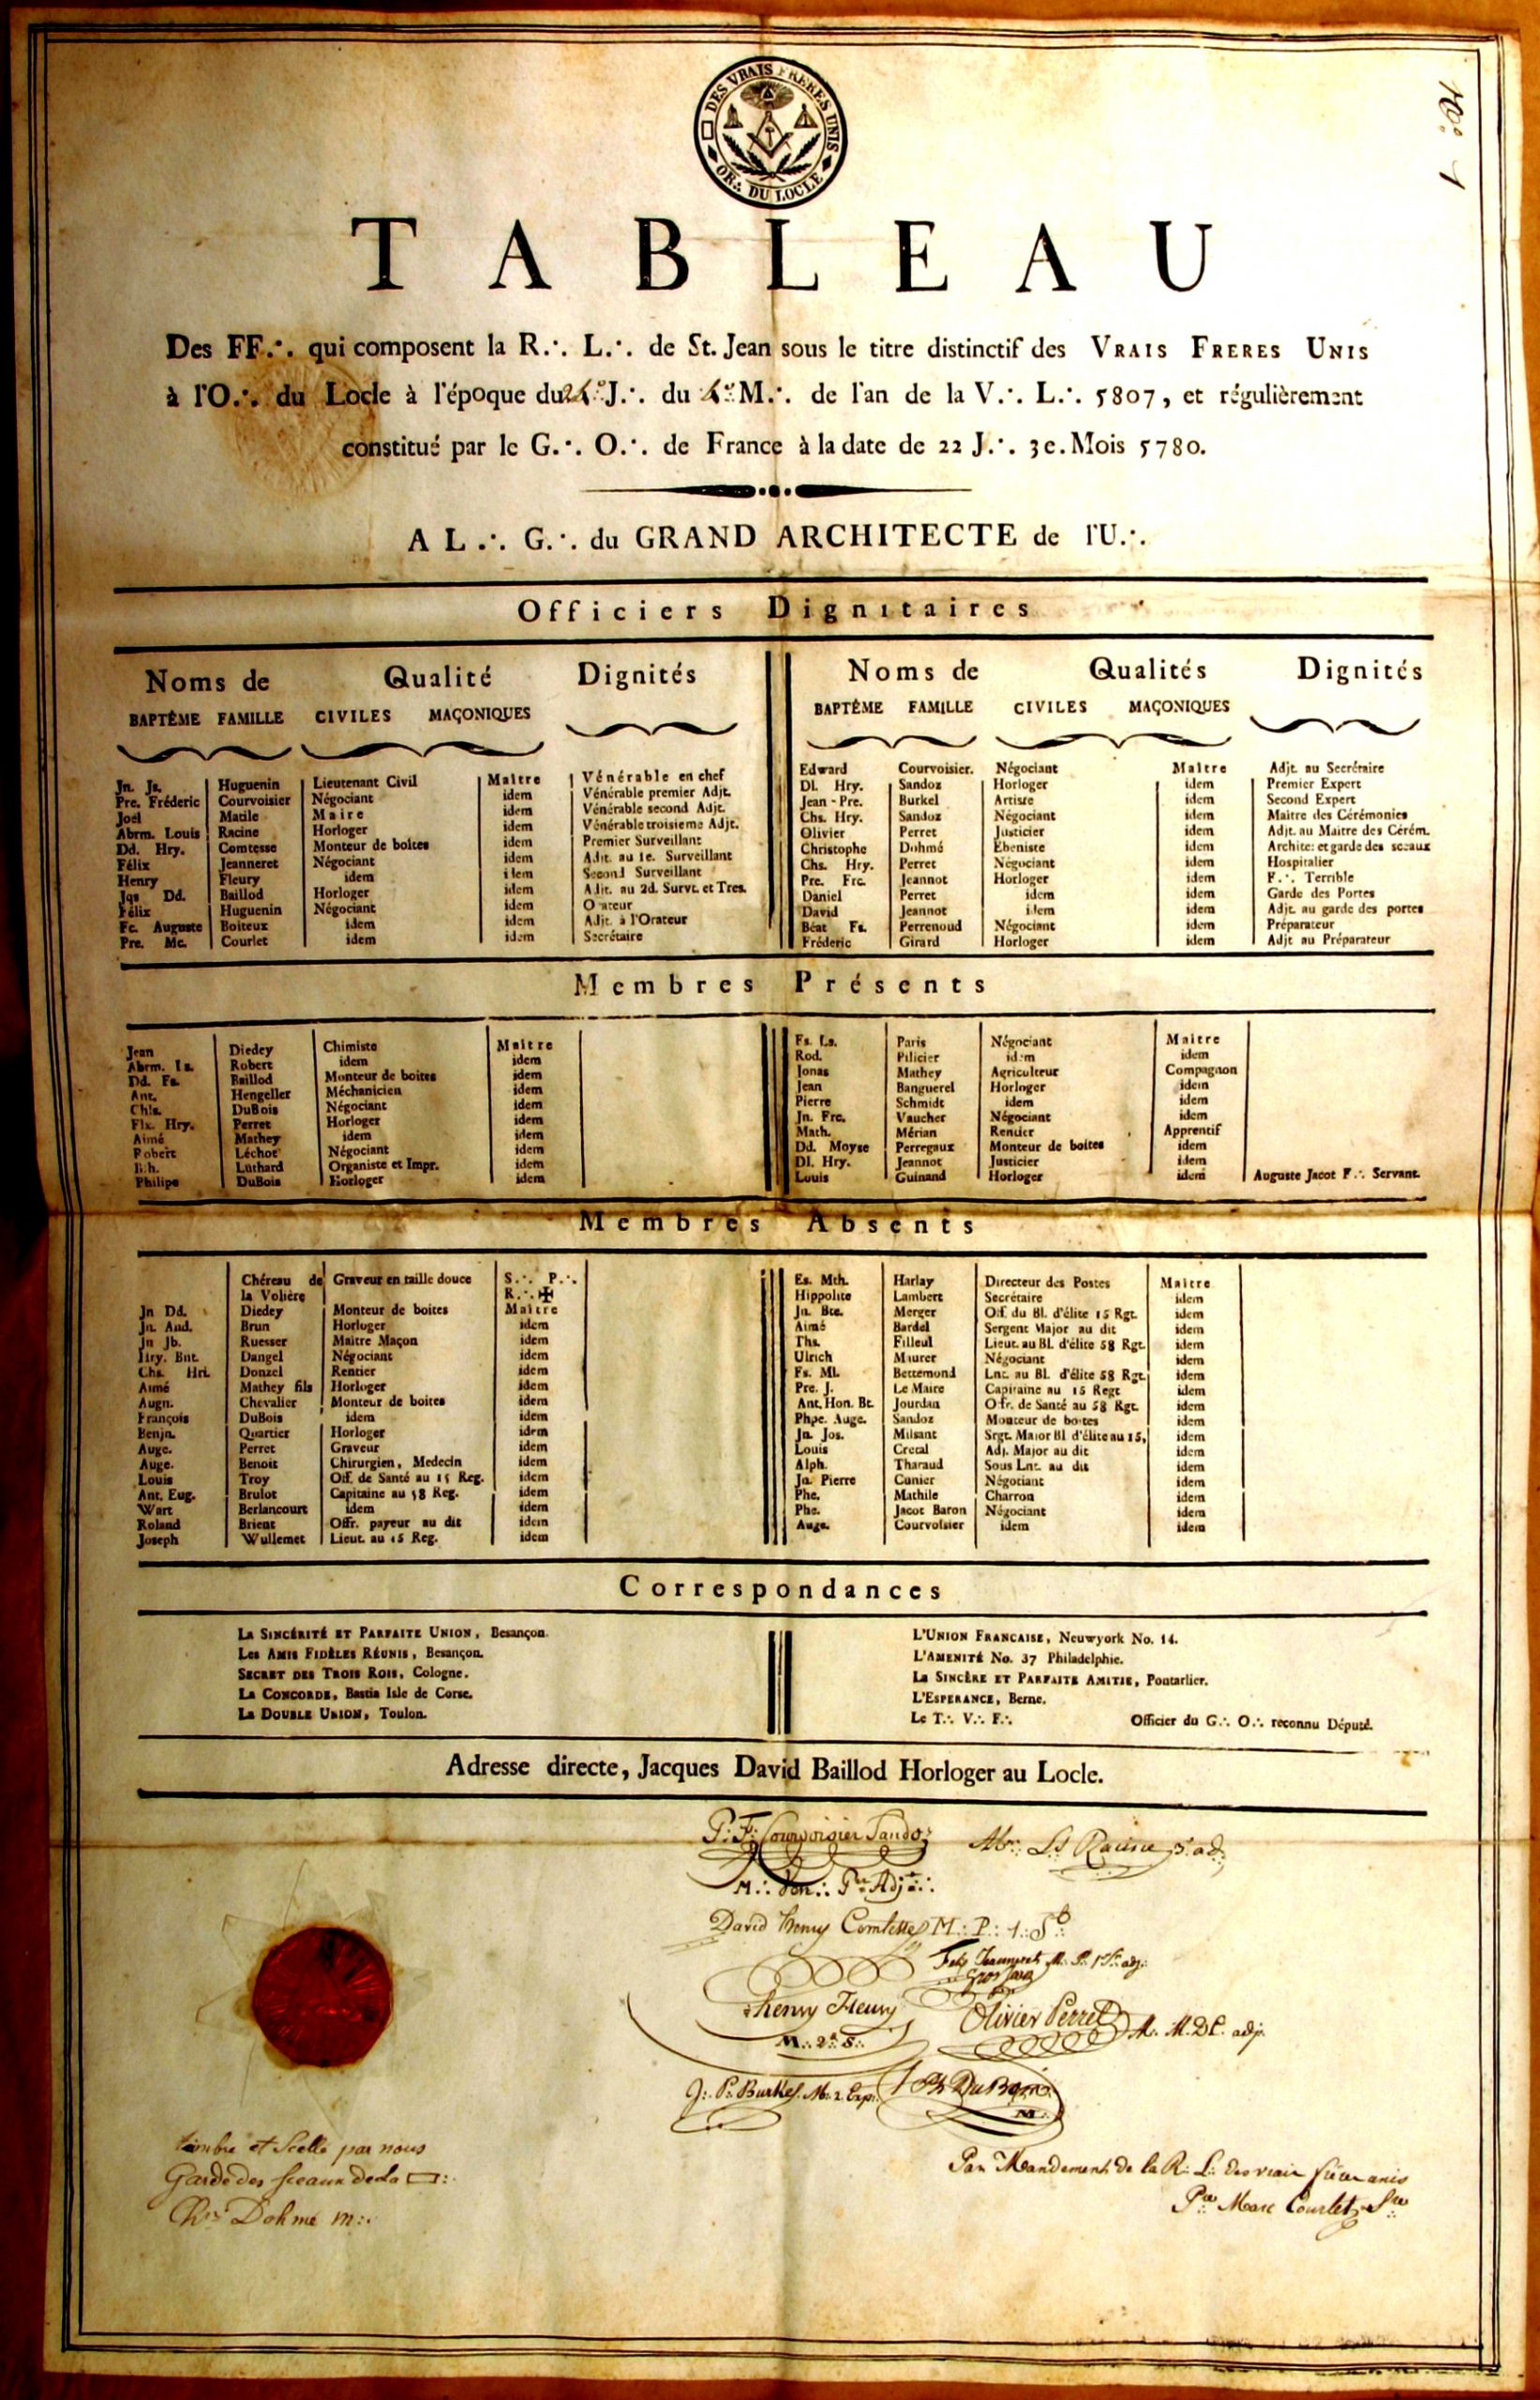 DES VRAIS FRERES UNIS
OR∴ DU LOCLE
TABLEAU
Des FF∴ qui composent la R∴ L∴ de St. Jean sous le titre distinctif des VRAIS FRERES UNIS
à l'O∴ du Locle à l'époque du 24e J∴ du 4e M∴ de l'an de la V∴ L∴ 5807, et régulièrement
constitué par le G∴ O∴ de France à la date de 22 J∴ 3e. Mois 5780.
A L∴ G∴ du GRAND ARCHITECTE de l'U∴
Officiers Dignitaires
Noms de Qualité Dignités
BAPTÊME FAMILLE CIVILES MAÇONIQUES
Jn. Js. Huguenin Lieutenant Civil Maître Vénérable en chef
Pre. Fréderic Courvoisier Négociant idem Vénérable premier Adjt.
Joel Matile Maire idem Vénérable second Adjt.
Abrm. Louis Racine Horloger idem Vénérable troisieme Adjt.
Dd. Hry. Comtesse Monteur de boîtes idem Premier Surveillant
Félix Jeanneret Négociant idem Adjt. au 1e. Surveillant
Henry Fleury idem idem Second Surveillant
Jqs Dd. Baillod Horloger idem Adjt. au 2d. Survt. et Tres.
Félix Huguenin Négociant idem Orateur
Fc. Auguste Boiteux idem idem Adjt. à l'Orateur
Pre. Mc. Courlet idem idem Secrétaire
Noms de Qualités Dignités
BAPTÊME FAMILLE CIVILES MAÇONIQUES
Edward Courvoisier. Négociant Maître Adjt. au Secrétaire
Dl. Hry. Sandoz Horloger idem Premier Expert
Jean - Pre. Burkel Artiste idem Second Expert
Chs. Hry. Sandoz Négociant idem Maitre des Cérémonies
Olivier Perret Justicier idem Adjt. au Maitre des Cérém.
Christophe Dohmé Ebeniste idem Archite: et garde des sceaux
Chs. Hry. Perret Négociant idem Hospitalier
Pre. Frc. Jeannot Horloger idem F∴ Terrible
Daniel Perret idem idem Garde des Portes
David Jeannot idem idem Adjt. au garde des portes
Béat Fs. Perrenoud Négociant idem Préparateur
Fréderic Girard Horloger idem Adjt au Préparateur
Membres Présents
Jean Diedey Chimiste Maître
Abrm. Is. Robert idem idem
Dd. Fs. Baillod Monteur de boites idem
Ant. Hengeller Méchanicien idem
Chls. DuBois Négociant idem
Flx. Hry. Perret Horloger idem
Aimé Mathey idem idem
Robert Léchot Négociant idem
Luthard Organiste et Impr. idem
Philipe DuBois Horloger idem
Fs. Ls. Paris Négociant Maitre
Rod. Pilicier idem idem
Jonas Mathey Agriculteur Compagnon
Jean Banguerel Horloger idem
Pierre Schmidt idem idem
Jn. Frc. Vaucher Négociant idem
Math. Mérian Rentier Apprentif
Dd. Moyse Perregaux Monteur de boites idem
Dl. Hry. Jeannot Justicier idem
Louis Guinand Horloger idem Auguste Jacot F∴ Servant.
Membres Absents
Chéreau de Graveur en taille douce S∴ P∴
la Volière R∴ ✠
Jn Dd. Diedey Monteur de boites Maitre
Jn. Aud. Brun Horloger idem
Jn Jb. Ruesser Maître Maçon idem
Hry. Bnt. Dangel Négociant idem
Chs. Hri. Donzel Rentier idem
Aimé Mathey fils Horloger idem
Augn. Chevalier Monteur de boites idem
François DuBois idem idem
Benjn. Quartier Horloger idem
Auge. Perret Graveur idem
Auge. Benoit Chirurgien, Medecin idem
Louis Troy Off. de Santé au 15 Reg. idem
Ant. Eug. Brulot Capitaine au 58 Reg. idem
Wart Berlancourt idem idem
Roland Brient Offr. payeur au dit idem
Joseph Wullemet Lieut. au 15 Reg. idem
Es. Mth. Harlay Directeur des Postes Maitre
Hippolite Lambert Secrétaire idem
Jn. Bte. Merger Off. du Bl. d'élite 15 Rgt. idem
Aimé Bardel Sergent Major au dit idem
Ths. Filleul Lieut. au Bl. d'élite 58 Rgt. idem
Ulrich Maurer Négociant idem
Fs. Ml. Bettemond Lnt. au Bl. d'élite 58 Rgt. idem
Pre. J. Le Maire Capitaine au 15 Regt idem
Ant. Hon. Bt. Jourdan Ofr. de Santé au 58 Rgt. idem
Phpe. Auge. Sandoz Monteur de boites idem
Jn. Jos. Milsant Srgt. Maior Bl d'élite au 15, idem
Louis Cretal Adj. Major au dit idem
Alph. Tharaud Sous Lnt. au dit idem
Jn Pierre Cunier Négotiant idem
Phe. Mathile Charron idem
Phe. Jacot Baron Négociant idem
Auge. Courvoisier idem idem
Correspondances
LA SINCÉRITÉ ET PARFAITE UNION, Besançon.
LES AMIS FIDÈLES RÉUNIS, Besançon.
SECRET DES TROIS ROIS, Cologne.
LA CONCORDE, Bastia Isle de Corse.
LA DOUBLE UNION, Toulon.
L'UNION FRANCAISE, Neuwyork No. 14.
L'AMENITÉ No. 37 Philadelphie.
LA SINCÈRE ET PARFAITE AMITIE, Pontarlier.
L'ESPERANCE, Berne.
Le T∴ V∴ F∴ Officier du G∴ O∴ reconnu Député.
Adresse directe, Jacques David Baillod Horloger au Locle.
P: F: Courvoisier Sandoz
M∴ Ven∴ Pr Adjt∴
Abr: Ls Racine 3e ad:
David henry Comtesse M: P: 1: S:
Felix Jeanneret M: P: 1r S: adj:
henry Fleury
M∴ 2d S∴
Olivier Perret M: M. D C. adj:
J: P: Burkel. M: 2 Exp:
Ph DuBois
M:
timbré et Scellé par nous
Garde des sceaux de La ▭:
Chr Dohmé m:.
Par Mandement de la R: L: des vrais frères unis
Pre Marc Courlet Sre